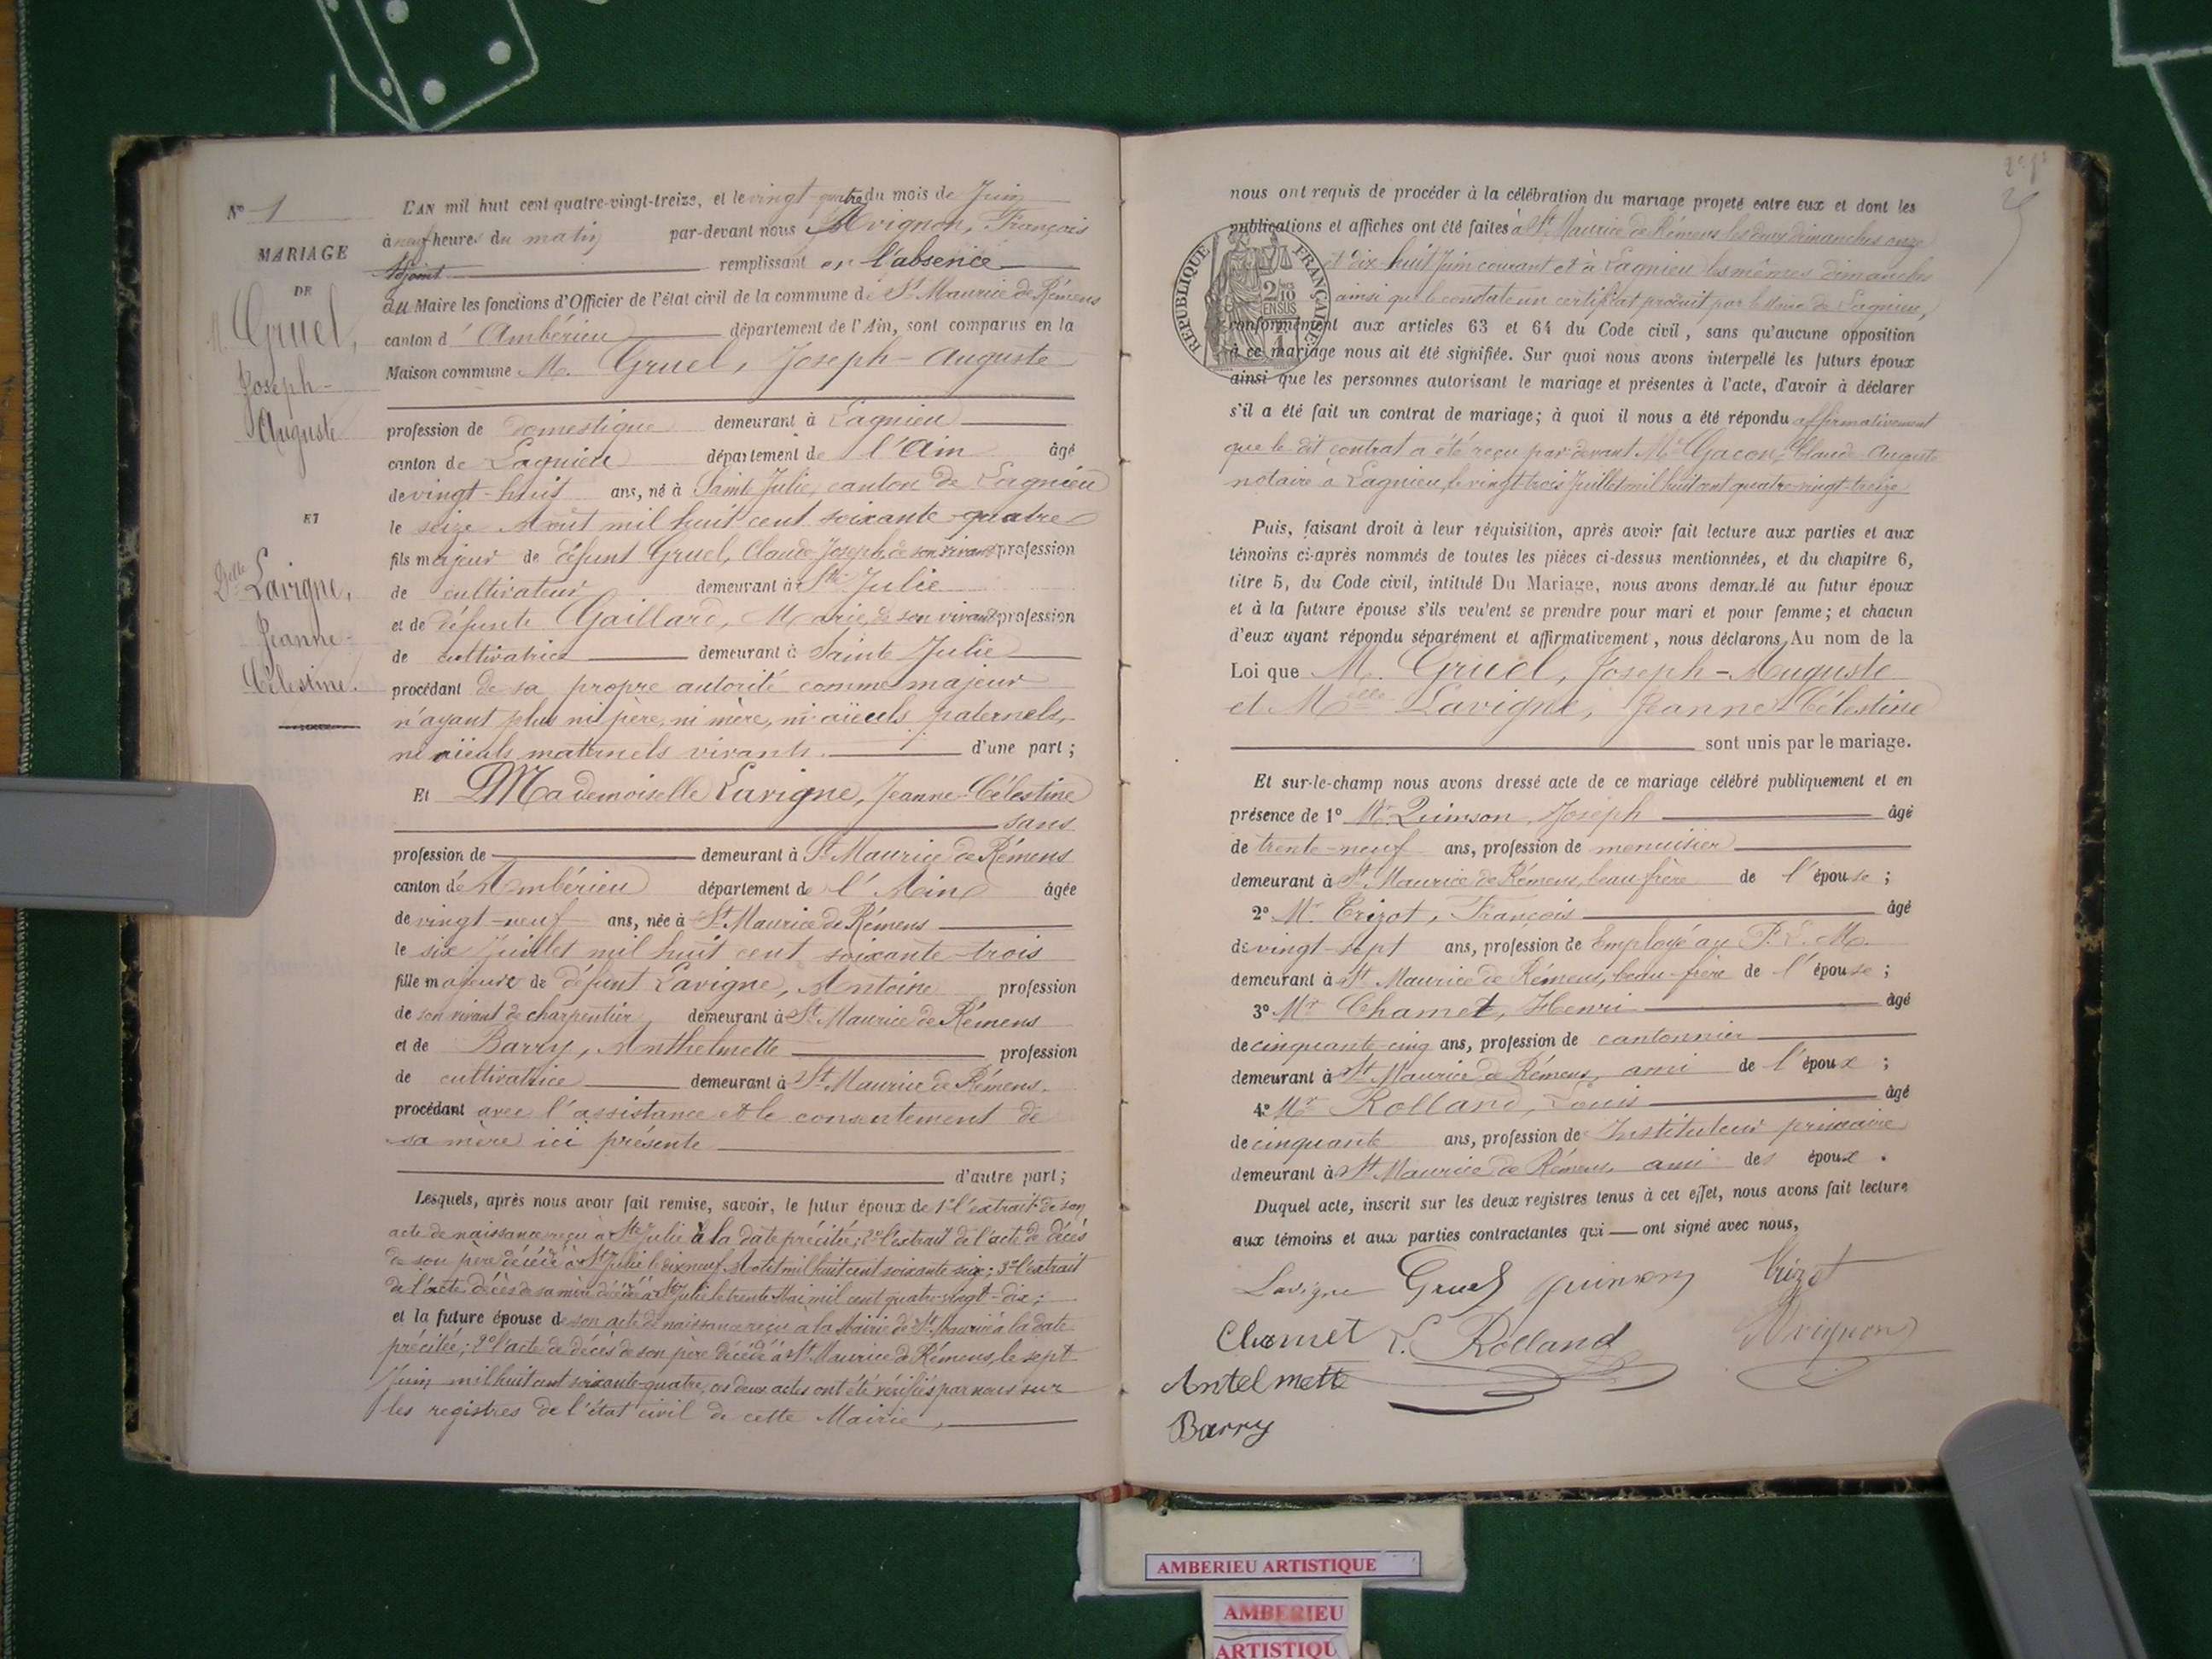 N° 1
MARIAGE
DE
M. Gruel,
Joseph-
Auguste
ET
Delle Lavigne,
Jeanne-
Célestine.
L'AN mil huit cent quatre-vingt-treize, et le vingt-quatre du mois de Juin
à neuf heures du matin par-devant nous Avignon, François
Adjoint remplissant en l'absence
du Maire les fonctions d'Officier de l'état civil de la commune de St Maurice de Rémens
canton d'Ambérieu département de l'Ain, sont comparus en la
Maison commune M. Gruel, Joseph-Auguste
profession de domestique demeurant à Lagnieu
canton de Lagnieu département de l'Ain âgé
de vingt-huit ans, né à Sainte Julie, canton de Lagnieu
le seize Août mil huit cent soixante-quatre
fils majeur de défunt Gruel, Claude-Joseph, de son vivant profession
de cultivateur demeurant à Ste Julie
et de défunte Gaillard, Marie, de son vivant profession
de cultivatrice demeurant à Sainte Julie
procédant de sa propre autorité comme majeur
n'ayant plus ni père, ni mère, ni aïeuls paternels,
ni aïeuls maternels vivants. d'une part ;
Et Mademoiselle Lavigne, Jeanne-Célestine
sans
profession de demeurant à St Maurice de Rémens
canton d'Ambérieu département de l'Ain âgée
de vingt-neuf ans, née à St Maurice de Rémens
le six Juillet mil huit cent soixante-trois
fille majeure de défunt Lavigne, Antoine profession
de son vivant de charpentier demeurant à St Maurice de Rémens
et de Barry, Anthelmette profession
de cultivatrice demeurant à St Maurice de Rémens.
procédant avec l'assistance et le consentement de
sa mère ici présente
d'autre part ;
Lesquels, après nous avoir fait remise, savoir, le futur époux de 1° l'extrait de son
acte de naissance reçu à Ste Julie à la date précitée ; 2° l'extrait de l'acte de décès
de son père décédé à Ste Julie le dix neuf Août mil huit cent soixante six ; 3° l'extrait
de l'acte décès de sa mère décédée à Ste Julie le trente Mai mil cent quatre-vingt-dix ;
et la future épouse de son acte de naissance reçu à la Mairie de St Maurice à la date
précitée ; 2° l'acte de décès de son père décédé à St Maurice de Rémens, le sept
Juin mil huit cent soixante-quatre, ces deux actes ont été vérifiés par nous sur
les registres de l'état civil de cette Mairie,
nous ont requis de procéder à la célébration du mariage projeté entre eux et dont les
publications et affiches ont été faites à St Maurice de Rémens les deux dimanches onze
et dix-huit Juin courant et à Lagnieu les mêmes dimanches
ainsi que le constate un certificat produit par le Maire de Lagnieu,
RÉPUBLIQUE FRANÇAISE
2/10 EN SUS
conformément aux articles 63 et 64 du Code civil, sans qu'aucune opposition
à ce mariage nous ait été signifiée. Sur quoi nous avons interpellé les futurs époux
ainsi que les personnes autorisant le mariage et présentes à l'acte, d'avoir à déclarer
s'il a été fait un contrat de mariage ; à quoi il nous a été répondu affirmativement
que le dit contrat a été reçu par devant Me Gacon, Claude-Auguste
notaire à Lagnieu, le vingt trois Juillet mil huit cent quatre-vingt-treize
Puis, faisant droit à leur réquisition, après avoir fait lecture aux parties et aux
témoins ci-après nommés de toutes les pièces ci-dessus mentionnées, et du chapitre 6,
titre 5, du Code civil, intitulé Du Mariage, nous avons demandé au futur époux
et à la future épouse s'ils veulent se prendre pour mari et pour femme ; et chacun
d'eux ayant répondu séparément et affirmativement, nous déclarons, Au nom de la
Loi que M. Gruel, Joseph-Auguste
et Melle Lavigne, Jeanne-Célestine
sont unis par le mariage.
Et sur-le-champ nous avons dressé acte de ce mariage célébré publiquement et en
présence de 1° Mr Quinson Joseph âgé
de trente-neuf ans, profession de menuisier
demeurant à St Maurice de Rémens, beau frère de l'épouse ;
2° Mr Crizot, François âgé
de vingt-sept ans, profession de Employé au P. L. M.
demeurant à St Maurice de Rémens, beau-frère de l'épouse ;
3° Mr Chamet, Henri âgé
de cinquante-cinq ans, profession de cantonnier
demeurant à St Maurice de Rémens, ami de l'époux ;
4° Mr Rolland, Louis âgé
de cinquante ans, profession de Instituteur primaire
demeurant à St Maurice de Rémens, ami des époux.
Duquel acte, inscrit sur les deux registres tenus à cet effet, nous avons fait lecture
aux témoins et aux parties contractantes qui ont signé avec nous,
Lavigne Gruel Quinson Crizot
Chamet L. Rolland Avignon
Antelmette
Barry
AMBERIEU ARTISTIQUE
AMBERIEU
ARTISTIQU